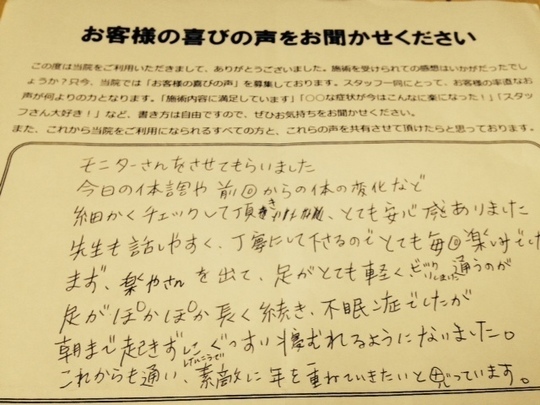 お客様の喜びの声をお聞かせください
この度は当院をご利用いただきまして、ありがとうございました。施術を受けられての感想はいかがだったでし
ょうか?只今、当院では「お客様の喜びの声」を募集しております。スタッフ一同にとって、お客様の率直なお
声が何よりの力となります。「施術内容に満足しています」「〇〇な症状が今はこんなに楽になった!」「スタッ
フさん大好き!」など、書き方は自由ですので、ぜひお気持ちをお聞かせください。
また、これから当院をご利用になられるすべての方と、これらの声を共有させて頂けたらと思っております。
モニターさんをさせてもらいました
今日の体調や前回からの体の変化など
細かくチェックして頂き、とても安心感ありました
先生も話しやすく、丁寧にして下さるのでとても毎回楽しみでした
まず、楽やさんを出て、足がとても軽く、ビックリしました 通うのが
足がぽかぽか長く続き、不眠症でしたが
朝まで起きずに ぐっすり寝むれるようになりました。
これからも通い、素敵に年を重ねていきたいと思っています。